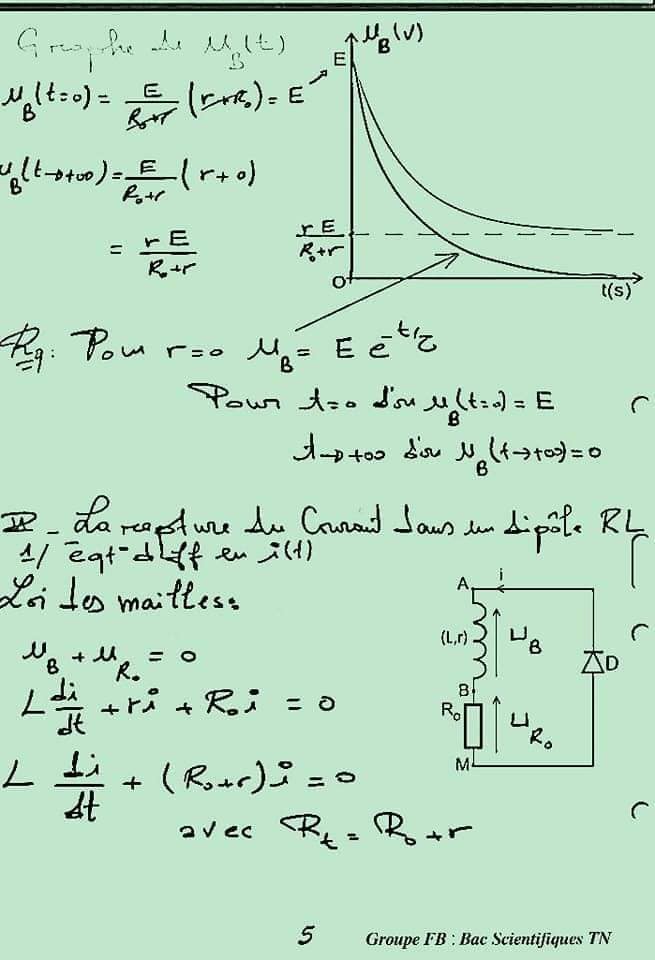 Graphe de u_B(t)
u_B(t=0) = E/(R₀+r) (r+R₀) = E
u_B(t→+∞) = E/(R₀+r) (r+0)
= rE/(R₀+r)
u_B(V)
E
rE/(R₀+r)
O
t(s)
Rq: Pour r=0 u_B = E e^(-t/τ)
Pour t=0 d'où u_B(t=0) = E
t→+∞ d'où u_B(t→+∞)=0
II - La rupture du Courant dans un dipôle RL
1/ éqt-diff en i(t)
Loi des mailles:
u_B + u_R₀ = 0
L di/dt + ri + R₀i = 0
L di/dt + (R₀+r)i = 0
avec R_t = R₀+r
A
i
(L,r)
u_B
D
B
R₀
u_R₀
M
5
Groupe FB : Bac Scientifiques TN